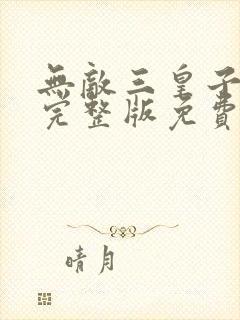 無敵三皇子
完整版免費
晴月